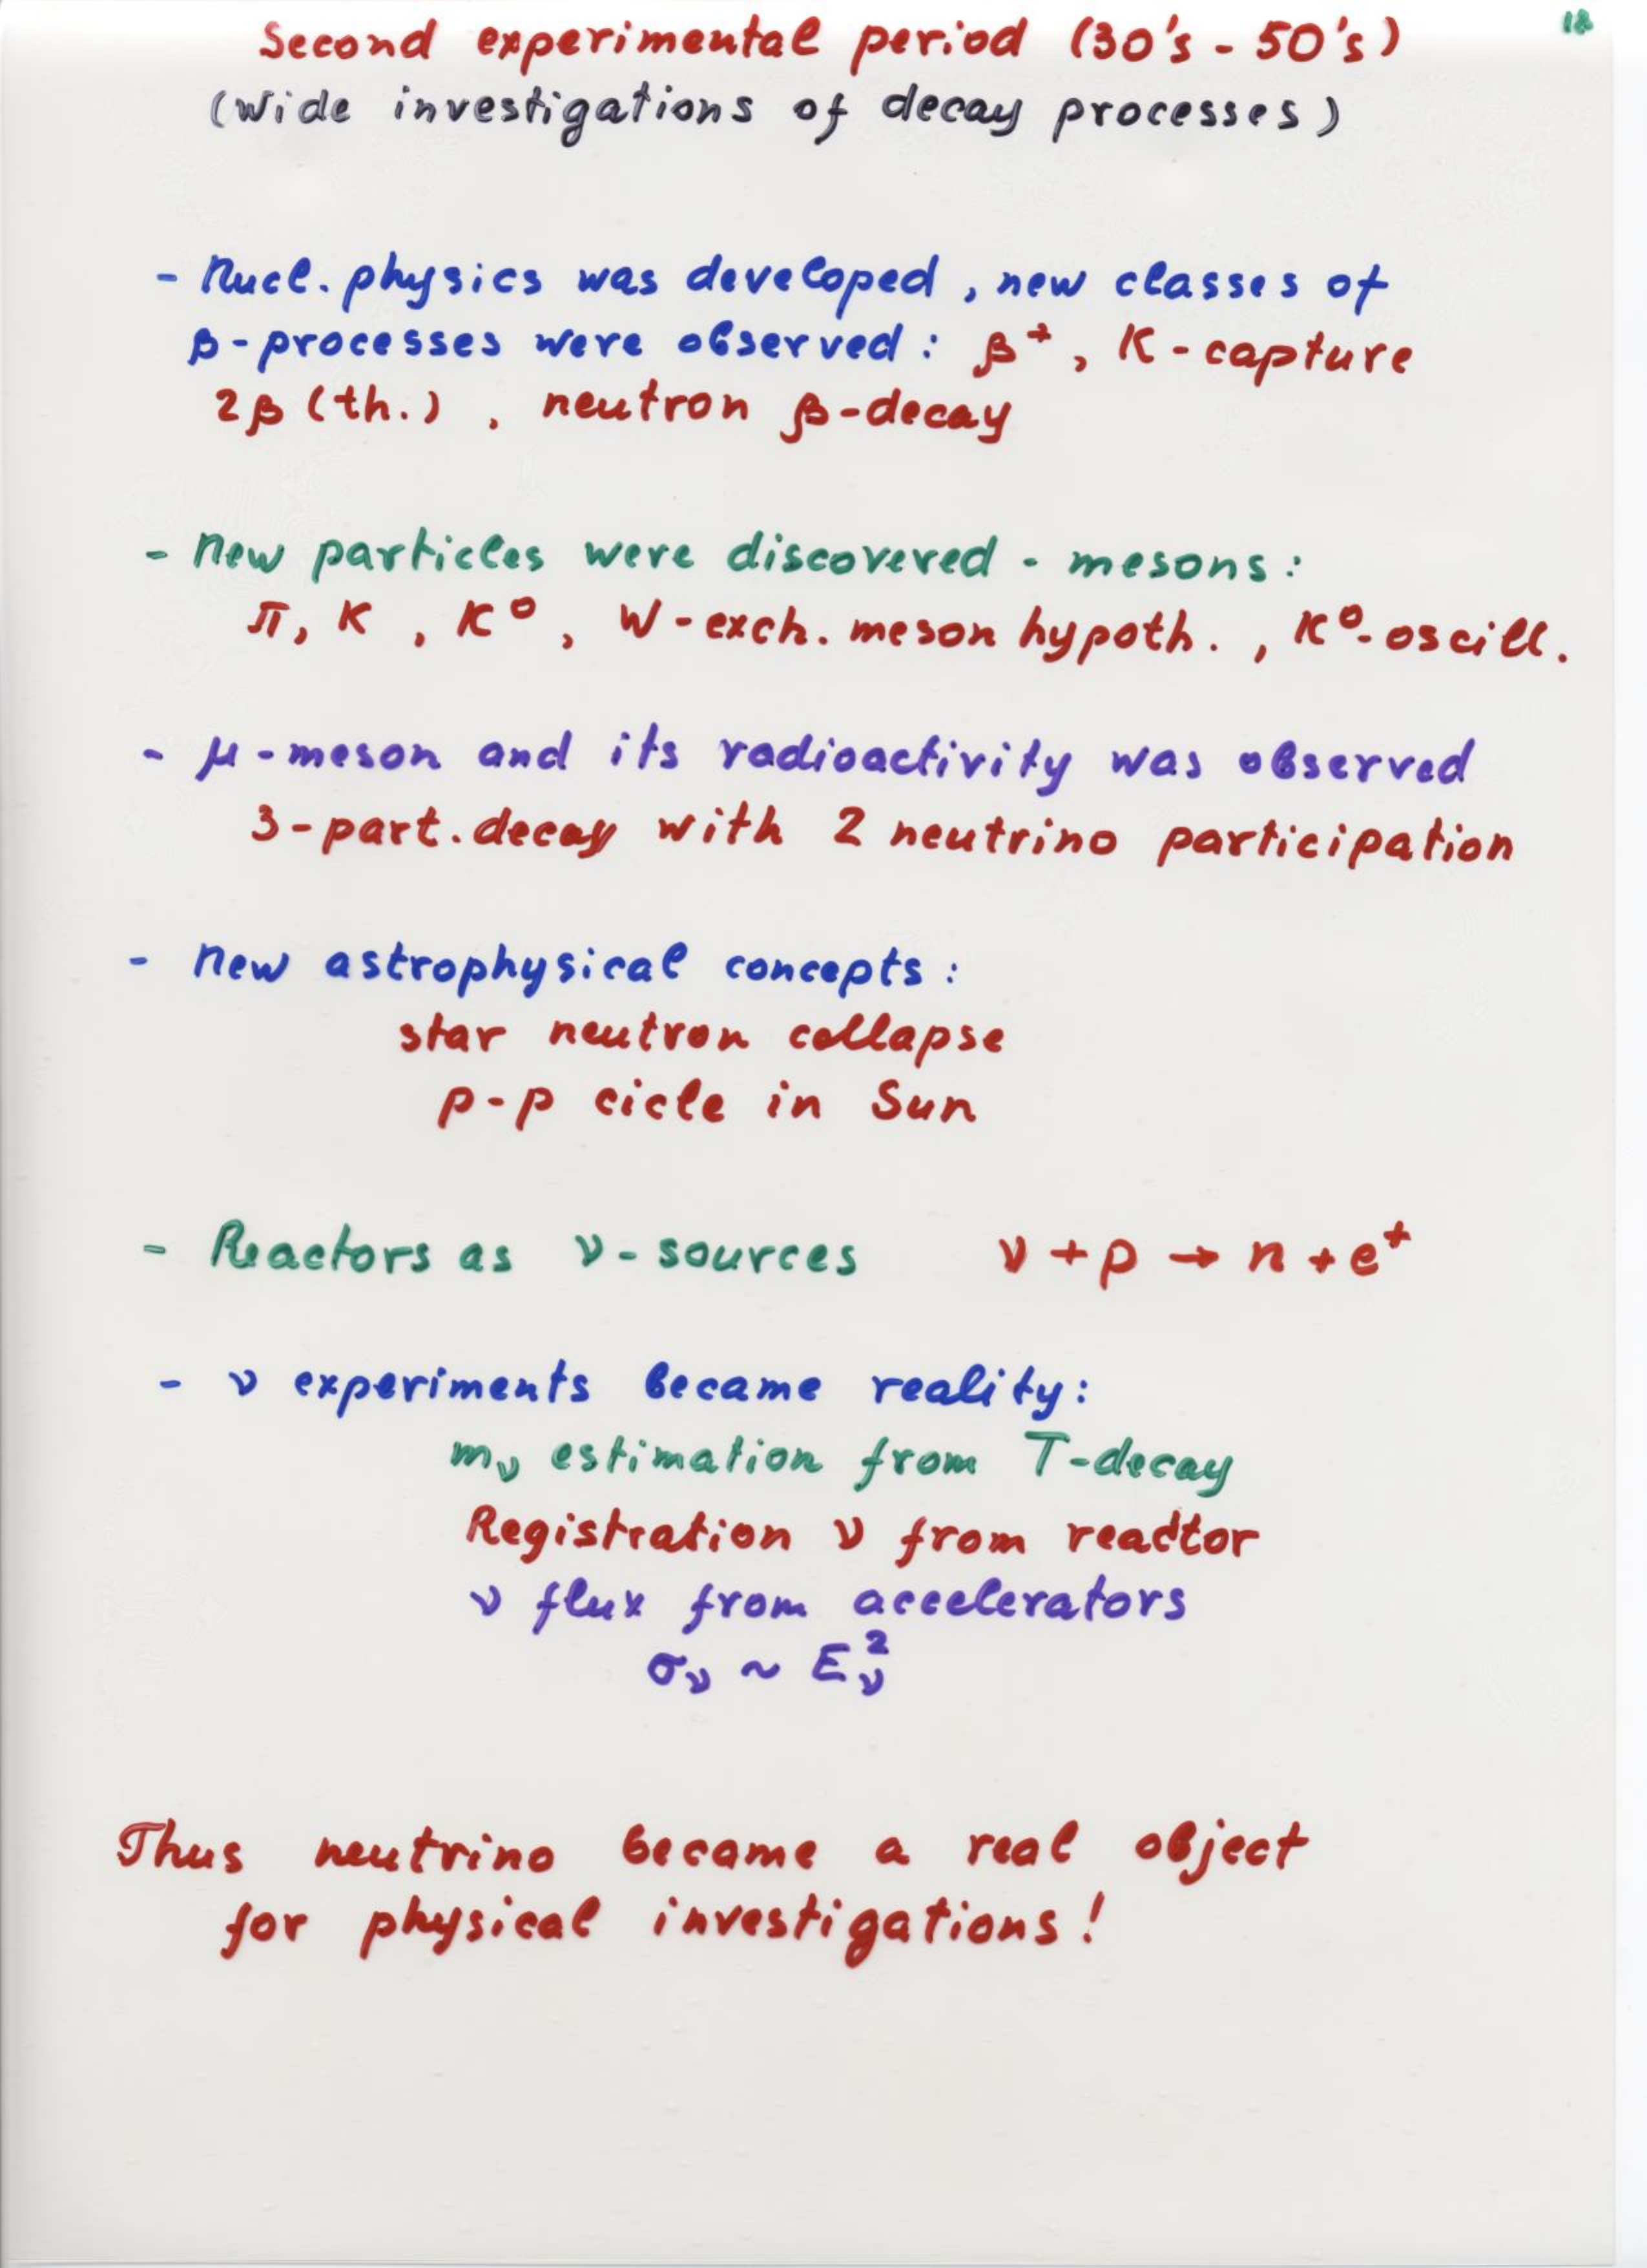 18
Second experimental period (30's - 50's)
(Wide investigations of decay processes)
- Nucl. physics was developed, new classes of
β-processes were observed: β⁺, K-capture
2β (th.), neutron β-decay
- New particles were discovered - mesons:
π, K, K⁰, W-exch. meson hypoth., K⁰-oscill.
- μ-meson and its radioactivity was observed
3-part. decay with 2 neutrino participation
- New astrophysical concepts:
star neutron collapse
p-p cicle in Sun
- Reactors as ν-sources ν + p → n + e⁺
- ν experiments became reality:
mν estimation from T-decay
Registration ν from reactor
ν flux from accelerators
σν ~ Eν²
Thus neutrino became a real object
for physical investigations!